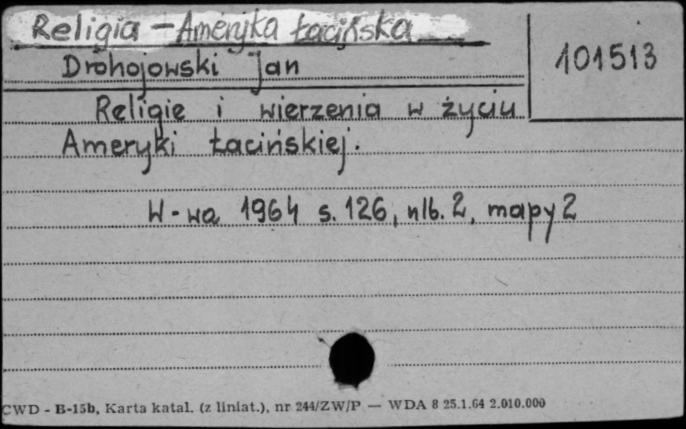 Religia - Ameryka Łacińska
Drohojowski Jan
101513
Religie i wierzenia w życiu
Ameryki Łacińskiej.
W-wa 1964 s. 126, nlb. 2, mapy 2
CWD - B-15b, Karta katal. (z liniat.), nr 244/ZW/P — WDA 8 25.1.64 2.010.000